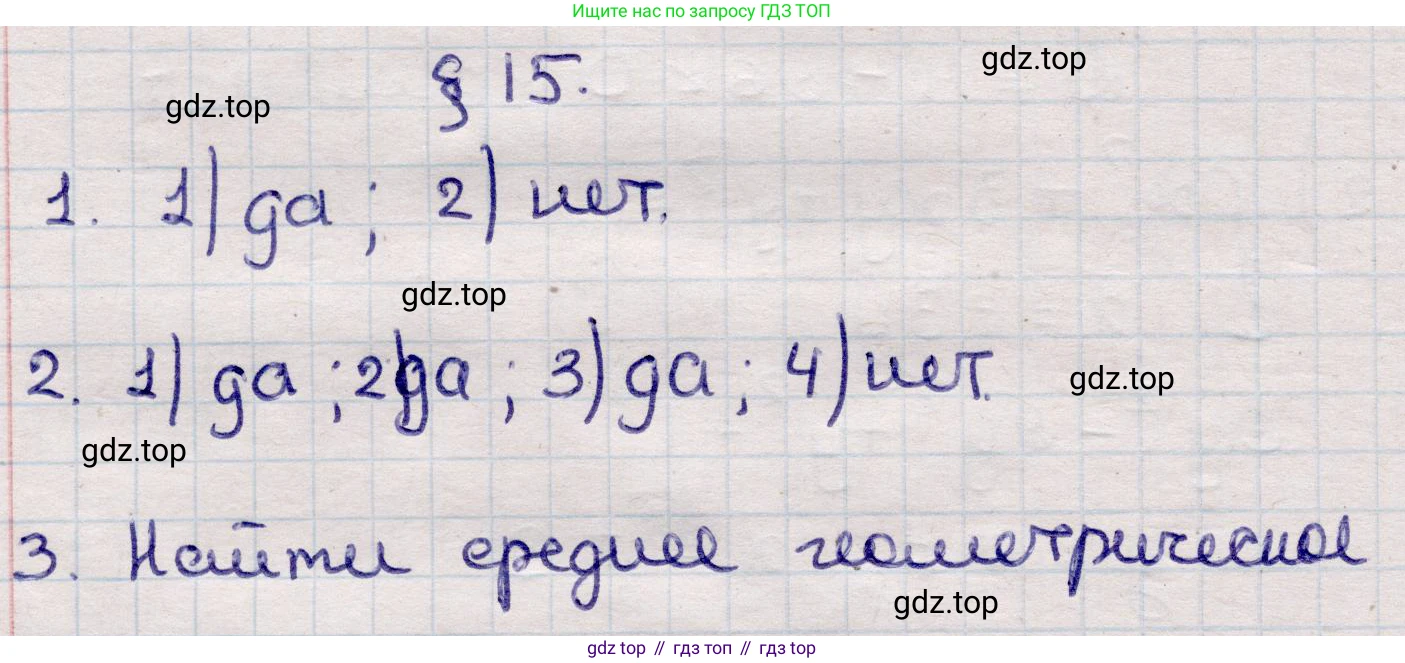 Ищите нас по запросу ГДЗ ТОП
§ 15.
gdz.top
gdz.top
1. 1) да; 2) нет.
gdz.top
2. 1) да; 2) да; 3) да; 4) нет.
gdz.top
gdz.top
3. Найти среднее геометрическое
gdz.top
gdz top // гдз топ // гдз top